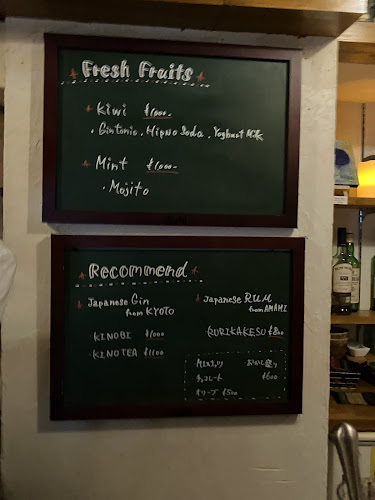 Fresh Fruits
Kiwi ¥1,000-
・Gintonic ・Hipno Soda ・Yoghurt Milk
Mint ¥1,000-
・Mojito
Recommend
Japanese Gin
from KYOTO
KINOBI ¥1,000
KINOTEA ¥1,100
Japanese RUM
from AMAMI
RURIKAKESU ¥800
MIXナッツ おかし盛り
チョコレート ¥600
オリーブ ¥500